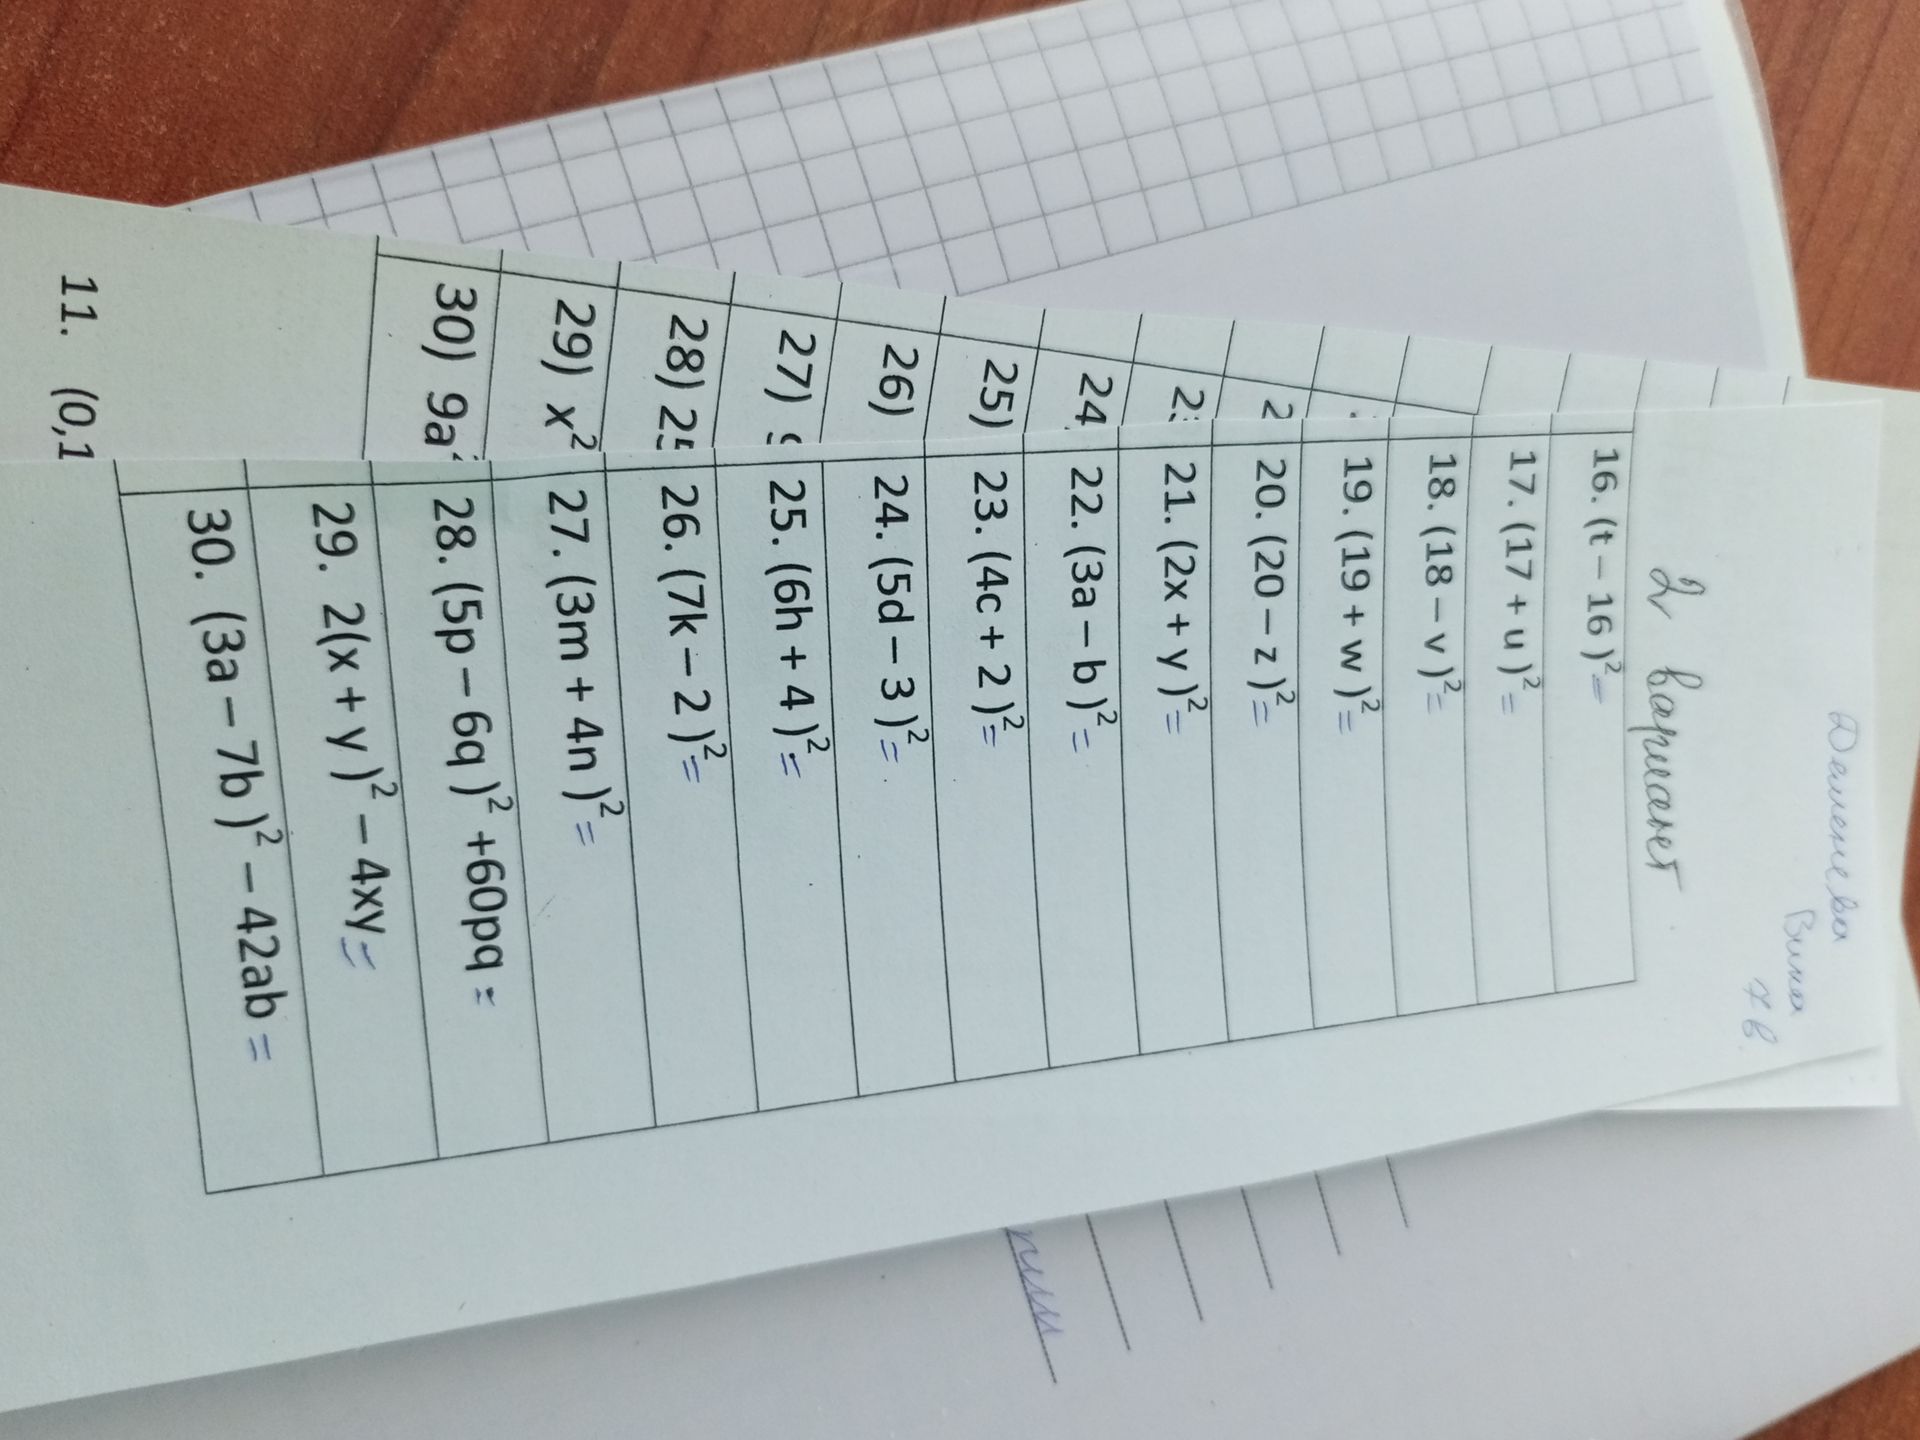 Вика
7в
2 вариант
16. (t – 16 )²=
17. (17 + u )²=
18. (18 – v )²=
19. (19 + w )²=
20. (20 – z )²=
21. (2x + y )²=
22. (3a – b )²=
23. (4c + 2 )²=
24. (5d – 3 )²=
25. (6h + 4 )²=
26. (7k – 2 )²=
27. (3m + 4n )²=
28. (5p – 6q )² +60pq =
29. 2(x + y )² – 4xy=
30. (3a – 7b )² – 42ab =
24
25)
26)
27)
28) 25
29) x²
30) 9a²
11. (0,1